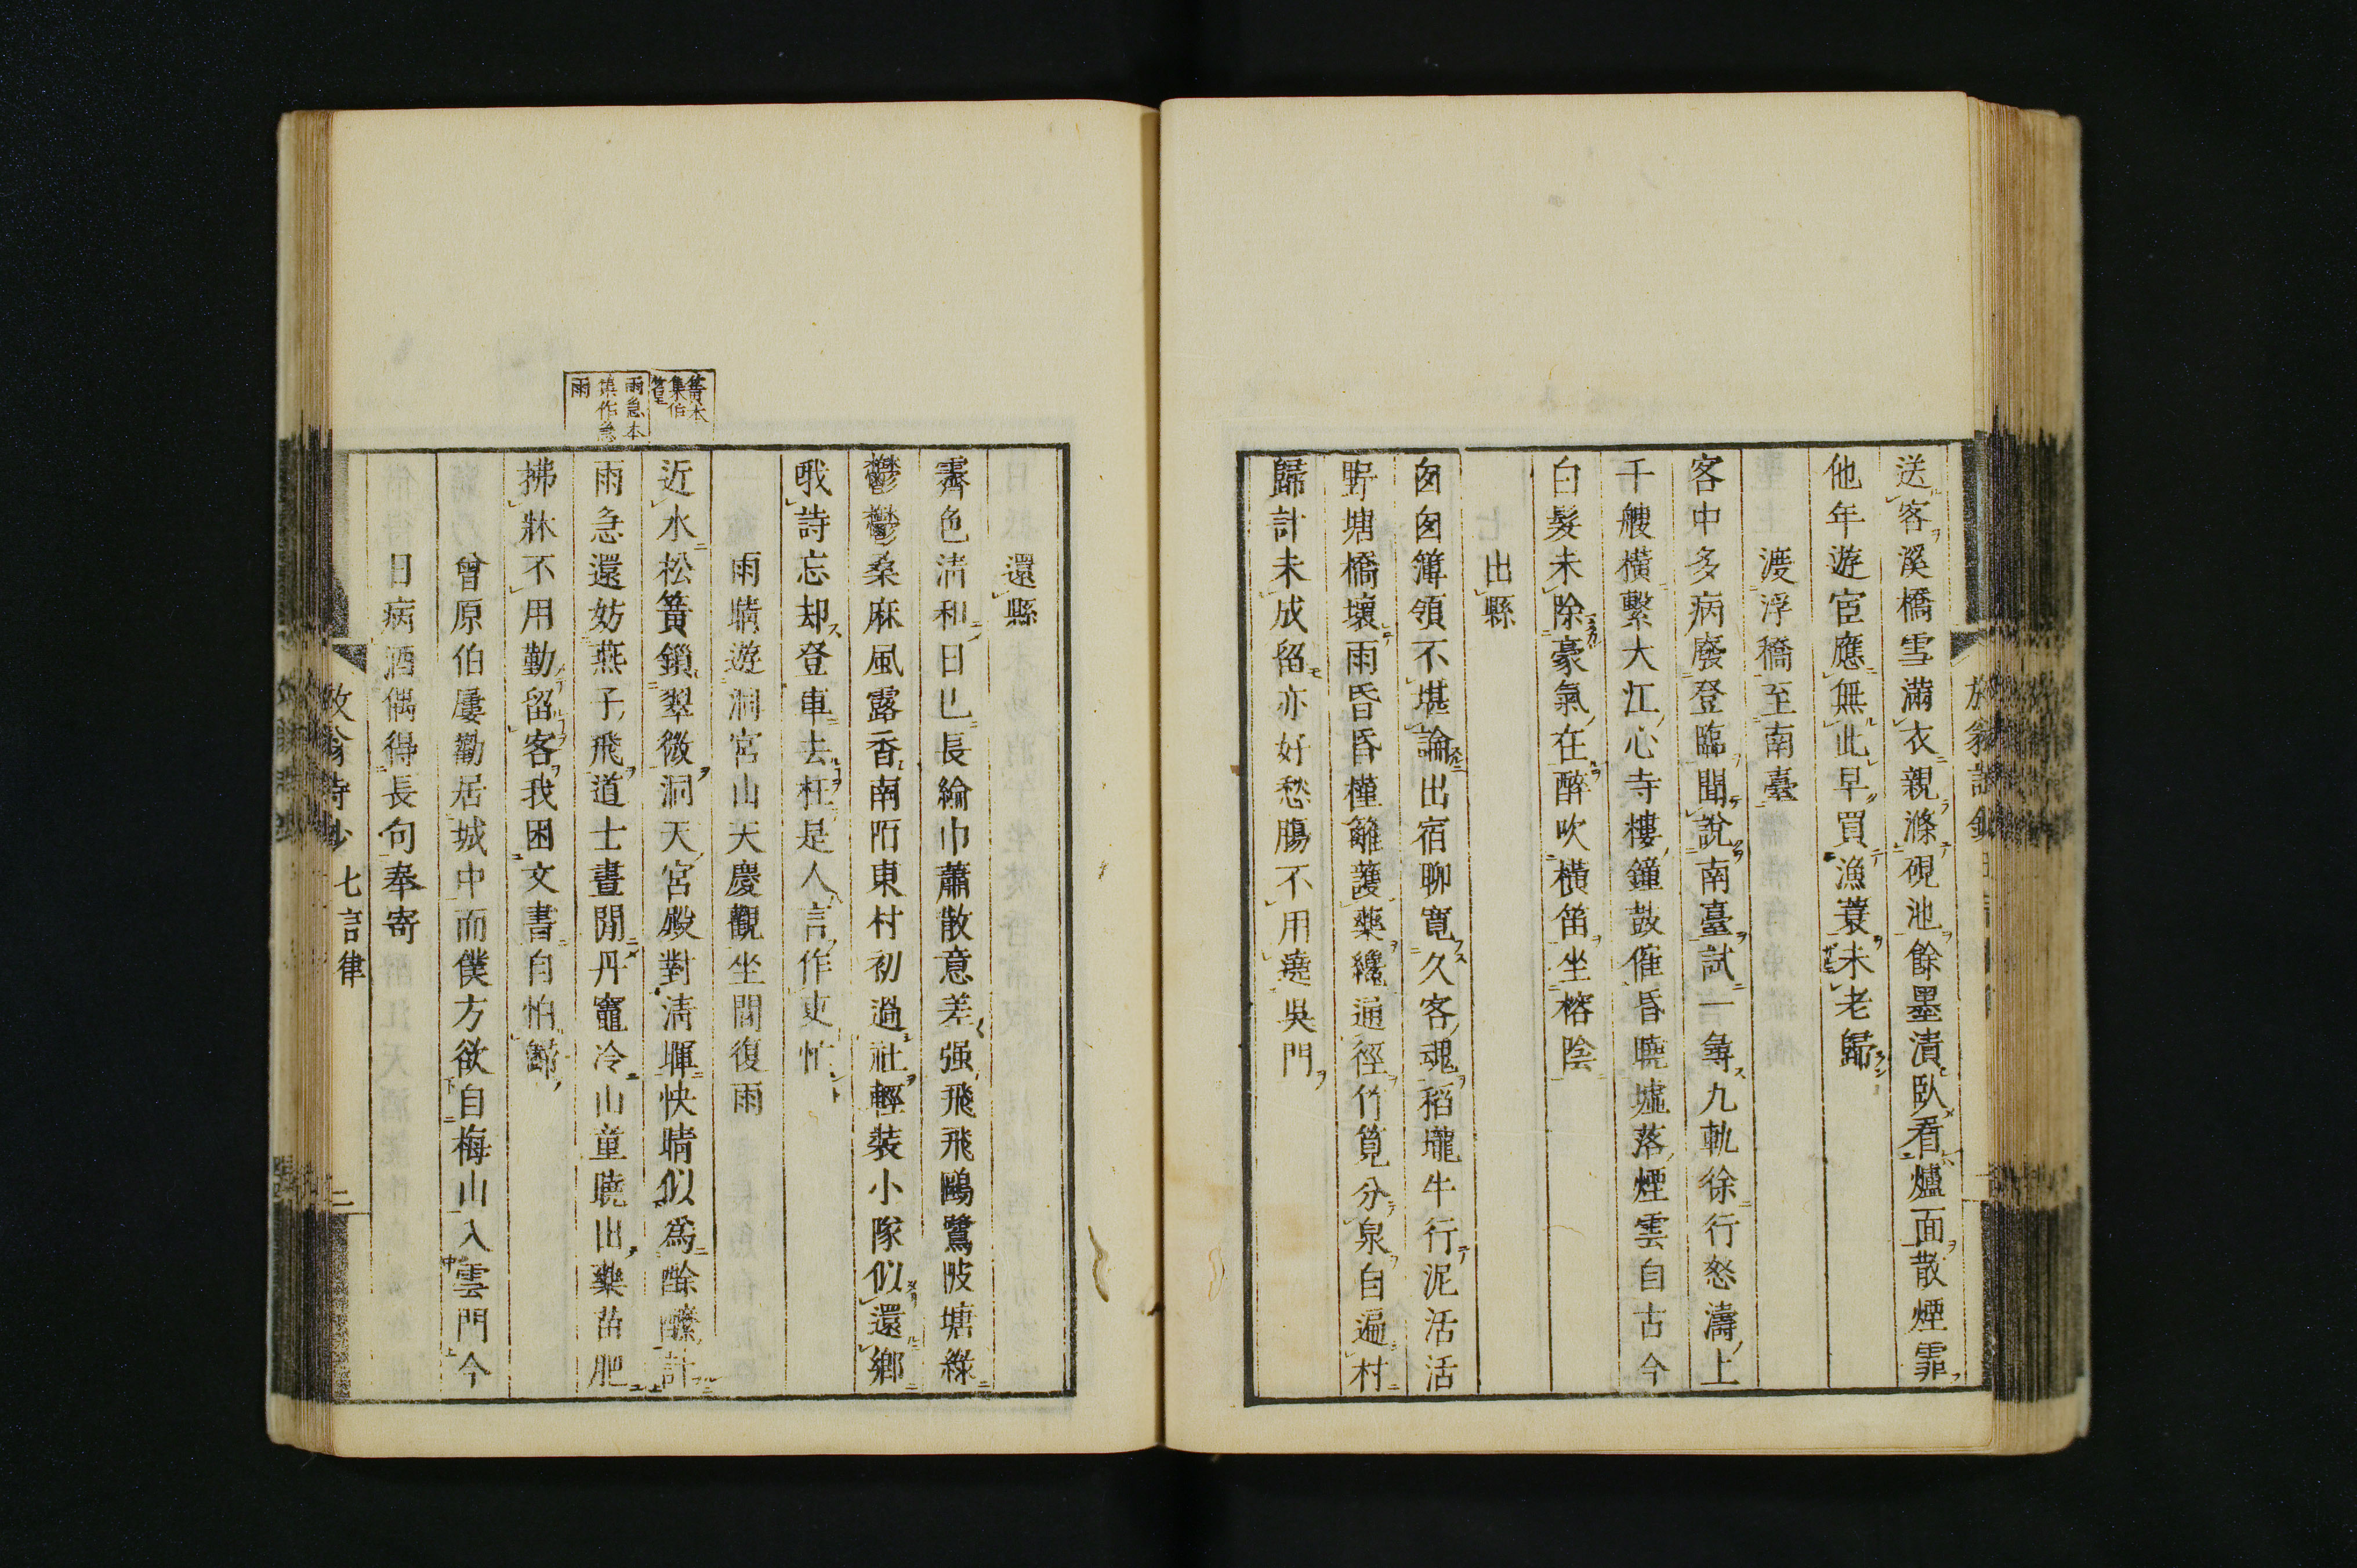 送客溪橋雪滿衣親滌硯池餘墨漬臥看爐面散煙霏
他年遊宦應無此早買漁蓑未老歸
渡浮橋至南臺
客中多病廢登臨聞說南臺試一尋九軌徐行怒濤上
千艘橫繫大江心寺樓鐘鼓催昏曉墟落煙雲自古今
白髮未除豪氣在醉吹橫笛坐榕陰
出縣
匆匆簿領不堪論出宿聊寬久客魂稻壠牛行泥活活
野塘橋壞雨昏昏槿籬護藥纔通徑竹筧分泉自遍村
歸計未成留亦好愁膓不用遶吳門
還縣
霽色清和日已長綸巾蕭散意差强飛飛鷗鷺陂塘綠
鬱鬱桑麻風露香南陌東村初過社輕裝小隊似還鄉
哦詩忘却登車去枉是人言作吏忙
雨晴遊洞宮山天慶觀坐間復雨
近水松篁鎖翠微洞天宮殿對清暉快晴似爲酴醾計
雨急還妨燕子飛道士晝閒丹竈冷山童曉出藥苗肥
拂牀不用勤留客我困文書自怕歸
曾原伯屢勸居城中而僕方欲自梅山入雲門今
日病酒偶得長句奉寄
雨急本
集作急
雨
放翁詩鈔 七言律 二